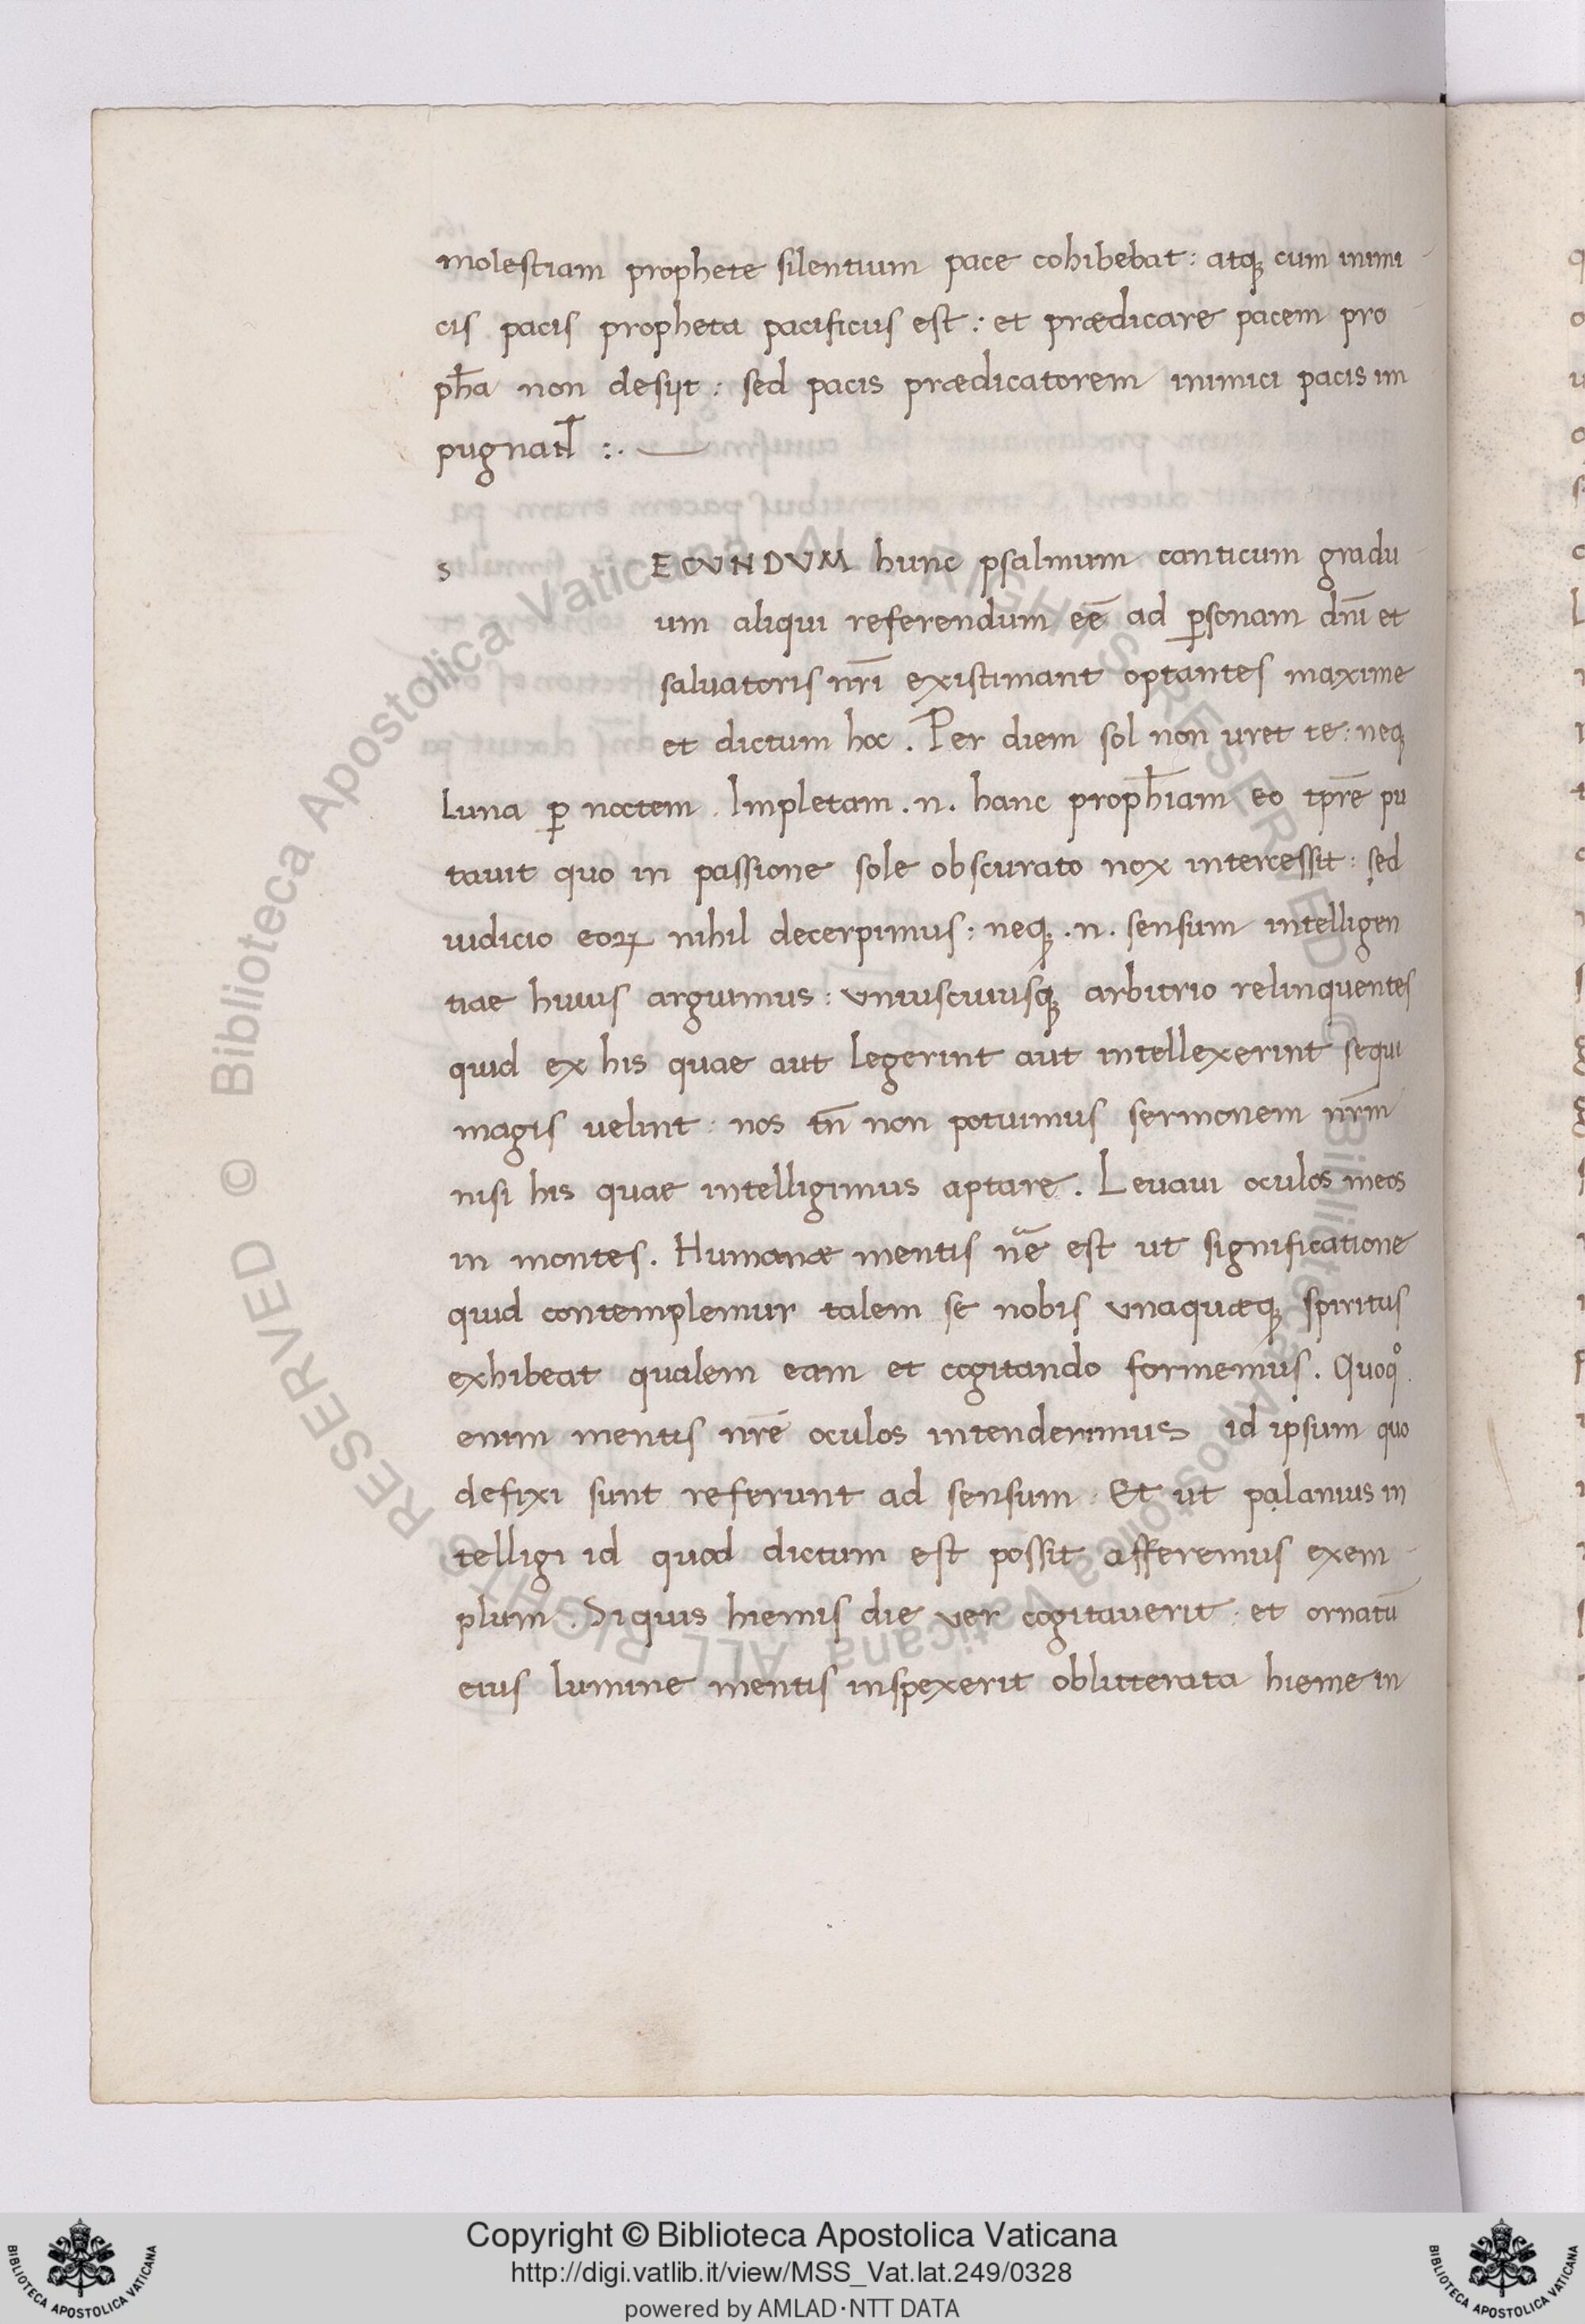 molestiam prophete silentium pace cohibebat: atq; cum inimi
cis pacis propheta pacificus est: et prædicare pacem pro
ph̄a non desijt: sed pacis prædicatorem inimici pacis im
pugnant :.
s ECVNDVM hunc psalmum canticum gradu
um aliqui referendum eē ad ꝑsonam dn̄i et
saluatoris nr̄i existimant optantes maxime
et dictum hoc. Per diem sol non uret te: neq;
luna ꝑ noctem. Impletam .n. hanc proph̄iam eo tp̄re pu
tauit quo in passione sole obscurato nox intercessit: sed
iudicio eoꝝ nihil decerpimus: neq; .n. sensum intelligen
tiae huius arguimus: vniuscuiusq; arbitrio relinquentes
quid ex his quae aut legerint aut intellexerint sequi
magis uelint: nos tn̄ non potuimus sermonem nr̄m
nisi his quae intelligimus aptare. Leuaui oculos meos
in montes. Humanæ mentis nāe est ut significatione
quid contemplemur talem se nobis vnaquæq; spiritus
exhibeat qualem eam et cogitando formemus. Quoqͦ.
enim mentis nr̄e oculos intenderimus id ipsum quo
defixi sunt referunt ad sensum. Et ut palanius in
telligi id quod dictum est possit afferemus exem
plum. Siquis hiemis die ver cogitauerit: et ornatū
eius lumine mentis inspexerit obliterata hieme in
© Biblioteca Apostolica Vaticana ALL RIGHTS RESERVED
© Biblioteca Apostolica Vaticana ALL RIGHTS RESERVED
Copyright © Biblioteca Apostolica Vaticana
http://digi.vatlib.it/view/MSS_Vat.lat.249/0328
powered by AMLAD·NTT DATA
BIBLIOTECA APOSTOLICA VATICANA
BIBLIOTECA APOSTOLICA VATICANA